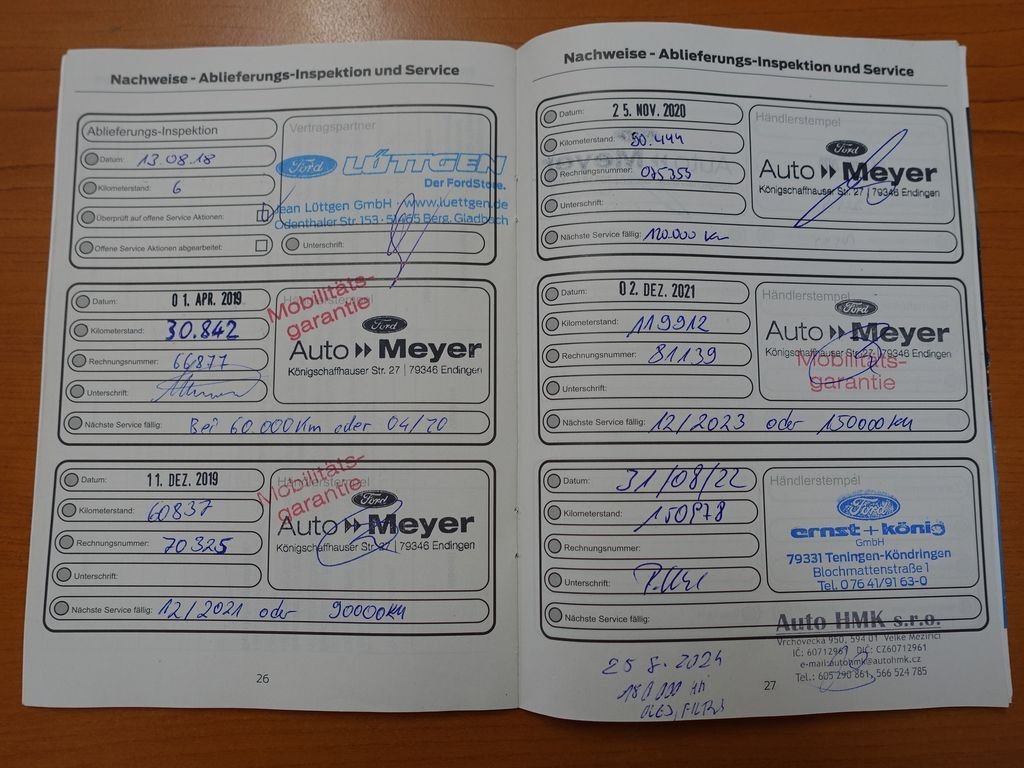 Nachweise - Ablieferungs-Inspektion und Service
Ablieferungs-Inspektion
Datum: 13.08.18
Kilometerstand: 6
Überprüft auf offene Service Aktionen:
Offene Service Aktionen abgearbeitet:
Vertragspartner
Ford LÜTTGEN
Der FordStore.
Jean Lüttgen GmbH · www.luettgen.de
Odenthaler Str. 153 · 51465 Berg. Gladbach
Unterschrift:
Datum: 01. APR. 2019
Kilometerstand: 30.842
Rechnungsnummer: 66877
Unterschrift:
Nächste Service fällig: Bei 60.000 Km oder 04/20
Händlerstempel
Mobilitäts-
garantie
Ford
Auto Meyer
Königschaffhauser Str. 27 | 79346 Endingen
Datum: 11. DEZ. 2019
Kilometerstand: 60837
Rechnungsnummer: 70325
Unterschrift:
Nächste Service fällig: 12/2021 oder 90000 km
Händlerstempel
Mobilitäts-
garantie
Ford
Auto Meyer
Königschaffhauser Str. 27 | 79346 Endingen
26
Nachweise - Ablieferungs-Inspektion und Service
Datum: 25. NOV. 2020
Kilometerstand: 90.444
Rechnungsnummer: 075353
Unterschrift:
Nächste Service fällig: 120.000 km
Händlerstempel
Ford
Auto Meyer
Königschaffhauser Str. 27 | 79346 Endingen
Datum: 02. DEZ. 2021
Kilometerstand: 119912
Rechnungsnummer: 81139
Unterschrift:
Nächste Service fällig: 12/2023 oder 150000 km
Händlerstempel
Ford
Auto Meyer
Königschaffhauser Str. 27 | 79346 Endingen
Mobilitäts-
garantie
Datum: 31/08/22
Kilometerstand: 150978
Rechnungsnummer:
Unterschrift:
Nächste Service fällig:
Händlerstempel
Ford
ernst+könig
GmbH
79331 Teningen-Köndringen
Blochmattenstraße 1
Tel. 0 76 41/91 63-0
Auto HMK s.r.o.
Vrchovecká 950, 594 01 Velké Meziříčí
IČ: 60712961, DIČ: CZ60712961
e-mail: autohmk@autohmk.cz
Tel.: 605 290 861, 566 524 785
25 8. 2024
180 000 km
OLEJ, FILTRY
27